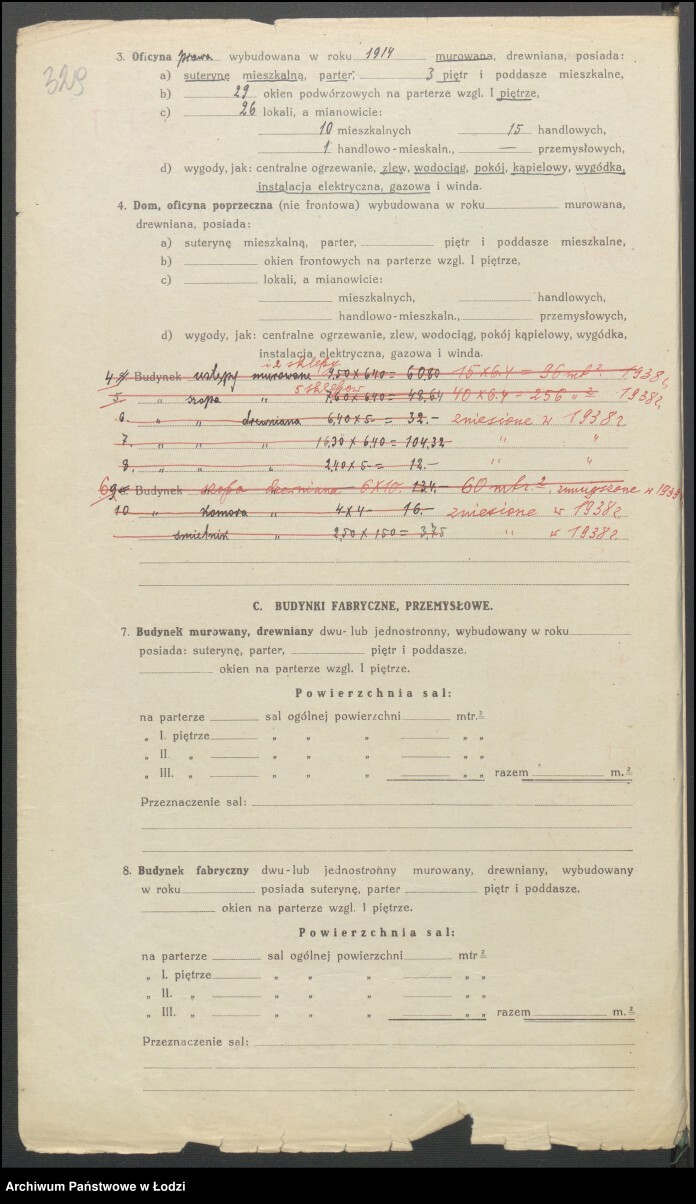 329
3. Oficyna prawa wybudowana w roku 1914 murowana, drewniana, posiada:
a) suterynę mieszkalną, parter, 3 piętr i poddasze mieszkalne,
b) 29 okien podwórzowych na parterze wzgl. I piętrze,
c) 26 lokali, a mianowicie:
10 mieszkalnych 15 handlowych,
1 handlowo-mieskaln., — przemysłowych,
d) wygody, jak: centralne ogrzewanie, zlew, wodociąg, pokój, kąpielowy, wygódka,
instalacja elektryczna, gazowa i winda.
4. Dom, oficyna poprzeczna (nie frontowa) wybudowana w roku murowana,
drewniana, posiada:
a) suterynę mieszkalną, parter, piętr i poddasze mieszkalne,
b) okien frontowych na parterze wzgl. I piętrze,
c) lokali, a mianowicie:
mieszkalnych, handlowych,
handlowo-mieszkaln., przemysłowych,
d) wygody, jak: centralne ogrzewanie, zlew, wodociąg, pokój kąpielowy, wygódka,
instalacja elektryczna, gazowa i winda.
i 2 sklepy
4 Budynek ustępy murowane 9,50 x 6,40 = 60,80 15 x 6.4 = 96 mt². 1938 r,
5 sklepów
5 „ szopa „ 7,60 x 6,40 = 48,64 40 x 6.4 - 256 „ ² 1938 r,
6. „ „ drewniana 6,40 x 5 - = 32.- zniesione w 1938 r
7. „ „ „ 16,30 x 6,40 = 104,32 „ „
8. „ „ „ 2,40 x 5 - = 12.- „ „
6 9 Budynek szopa drewniana - 6 x 10. 60 mtr². w 1938
10 „ komora „ 4 x 4 - 16.- zniesione w 1938 r
śmietnik „ 2,50 x 1,50 = 3,75 „ w 1938 r
C. BUDYNKI FABRYCZNE, PRZEMYSŁOWE.
7. Budynek murowany, drewniany dwu- lub jednostronny, wybudowany w roku
posiada: suterynę, parter, piętr i poddasze.
okien na parterze wzgl. I piętrze.
Powierzchnia sal:
na parterze sal ogólnej powierzchni mtr.²
„ I. piętrze „ „ „ „ „
„ II. „ „ „ „ „ „
„ III. „ „ „ „ „ „ razem m.²
Przeznaczenie sal:
8. Budynek fabryczny dwu-lub jednostronny murowany, drewniany, wybudowany
w roku posiada suterynę, parter piętr i poddasze.
okien na parterze wzgl. I piętrze.
Powierzchnia sal:
na parterze sal ogólnej powierzchni mtr²
„ I. piętrze „ „ „ „ „
„ II. „ „ „ „ „ „
„ III. „ „ „ „ „ „ razem m.²
Przeznaczenie sal:
Archiwum Państwowe w Łodzi